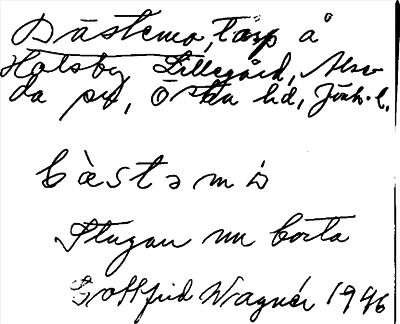 Båstemo, Torp å
Holsby Lillegård, Alse-
da sn, Östra hd, Jönk. l.
båstəmò
Stugan nu borta
Gottfrid Wagnér 1946